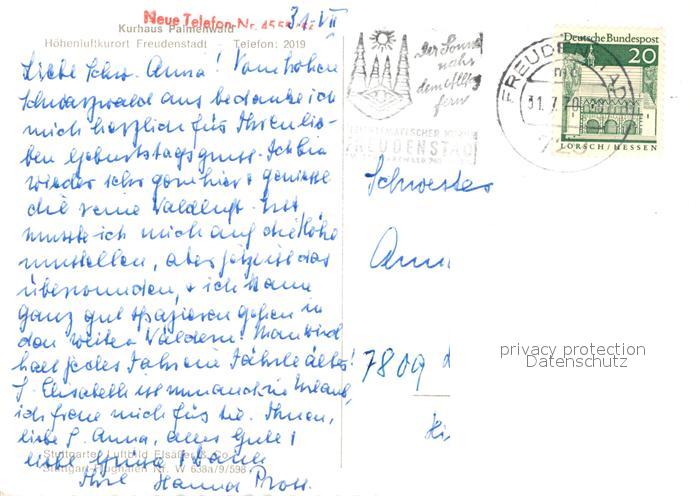 Neue Telefon-Nr. 4555
31. VII
Kurhaus Palmenwald
Höhenluftkurort Freudenstadt - Telefon: 2019
Liebe Schw. Anna! Vom hohen
Schwarzwald aus bedanke ich
mich herzlich für Ihren lie-
ben Geburtstagsgruss. Ich bin
wieder sehr gern hier + geniesse
die reine Waldluft. Erst
musste ich mich auf die Höhe
umstellen, aber jetzt ist das
überwunden, + ich kann
ganz gut spazieren gehen in
den weiten Wäldern. Man wird
halt jedes Jahr ein Jährle älter!
S. Elisabeth ist nun auch in Urlaub,
ich freue mich für sie. Ihnen,
liebe S. Anna, alles Gute!
liebe Grüsse + Dank
Ihre Hanna
Stuttgarter Luftbild Elsäßer & Co.
Stuttgart-Flughafen Nr. W 638a/9/598
der Sonne
nah
dem Alltag
fern
FREUDENSTADT
FREUDENSTADT
31.7.70
Deutsche Bundespost
20
LORSCH/HESSEN
Schwester
Anna
7809
privacy protection
Datenschutz